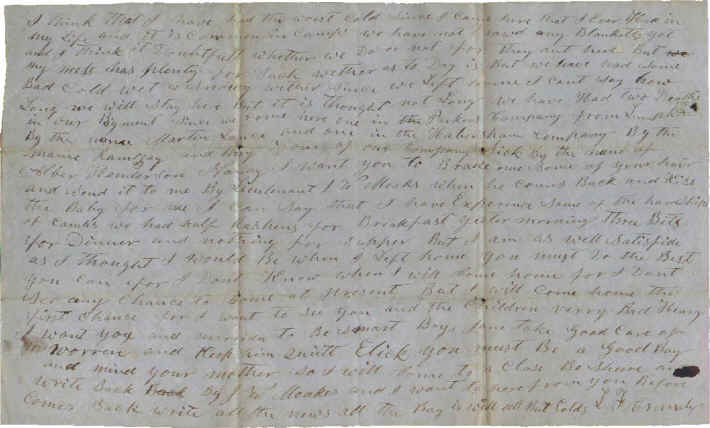 I think that I have had the worst Cold Since I Came here that I Ever Had in
my Life and it is Common in Camps we have not drawd any Blankets yet
and I think it Doubtfull whether we Do or not for they aint here But
my mess has plenty for Such wether as to Day is But we have had Some
Bad Cold wet wether Since we Left home I cant Say how
Long we will Stay here But it is thought not Long we have Had two Deaths
in our Rigment Since we come here one in the Company from Lumpkin
By the name Martin Lance and one in the Habersham Company By the
name Ramsey and of our Company Sick By the name of
Henderson I want you to Brade me Some of your hair
and Send it to me By Lieutenant J W Meaks when he Comes Back and Kiss
the Baby for me I can Say that I have Experince Some of the hardships
of Camps we had half Rashens for Breakfast yestermorning Three Bits
for Dinner and nothing for Supper But I am as well Satisfide
as I thought I would Be when I Left home you must Do the Best
you Can for I Dont Know when I will Come home for I Dont
See any Chance to Come at present But I will Come home the
first Chance for I want to See you and the Children verry Bad Henry
I want you and to Be Smart Boys and take Good Care of
Worren and Keep him Elick you must Be a Good Boy
and mind your mother So I will Come to a Close Be Shure and
write Back By J W Meakes and I want to here from you Before
Comes Back write all the news all the Boys is well all But Colds